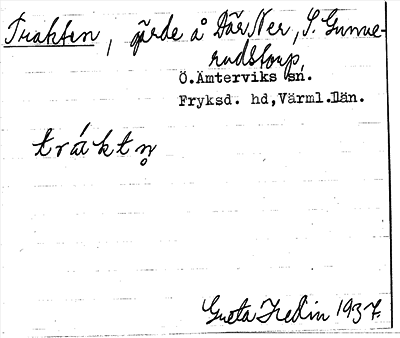 Trakten, gärde å Där Ner, S. Gunne-
rudstorp,
Ö.Ämterviks sn.
Fryksd. hd,Värml.Län.
tráktn̥
Gösta Fredin 1937.